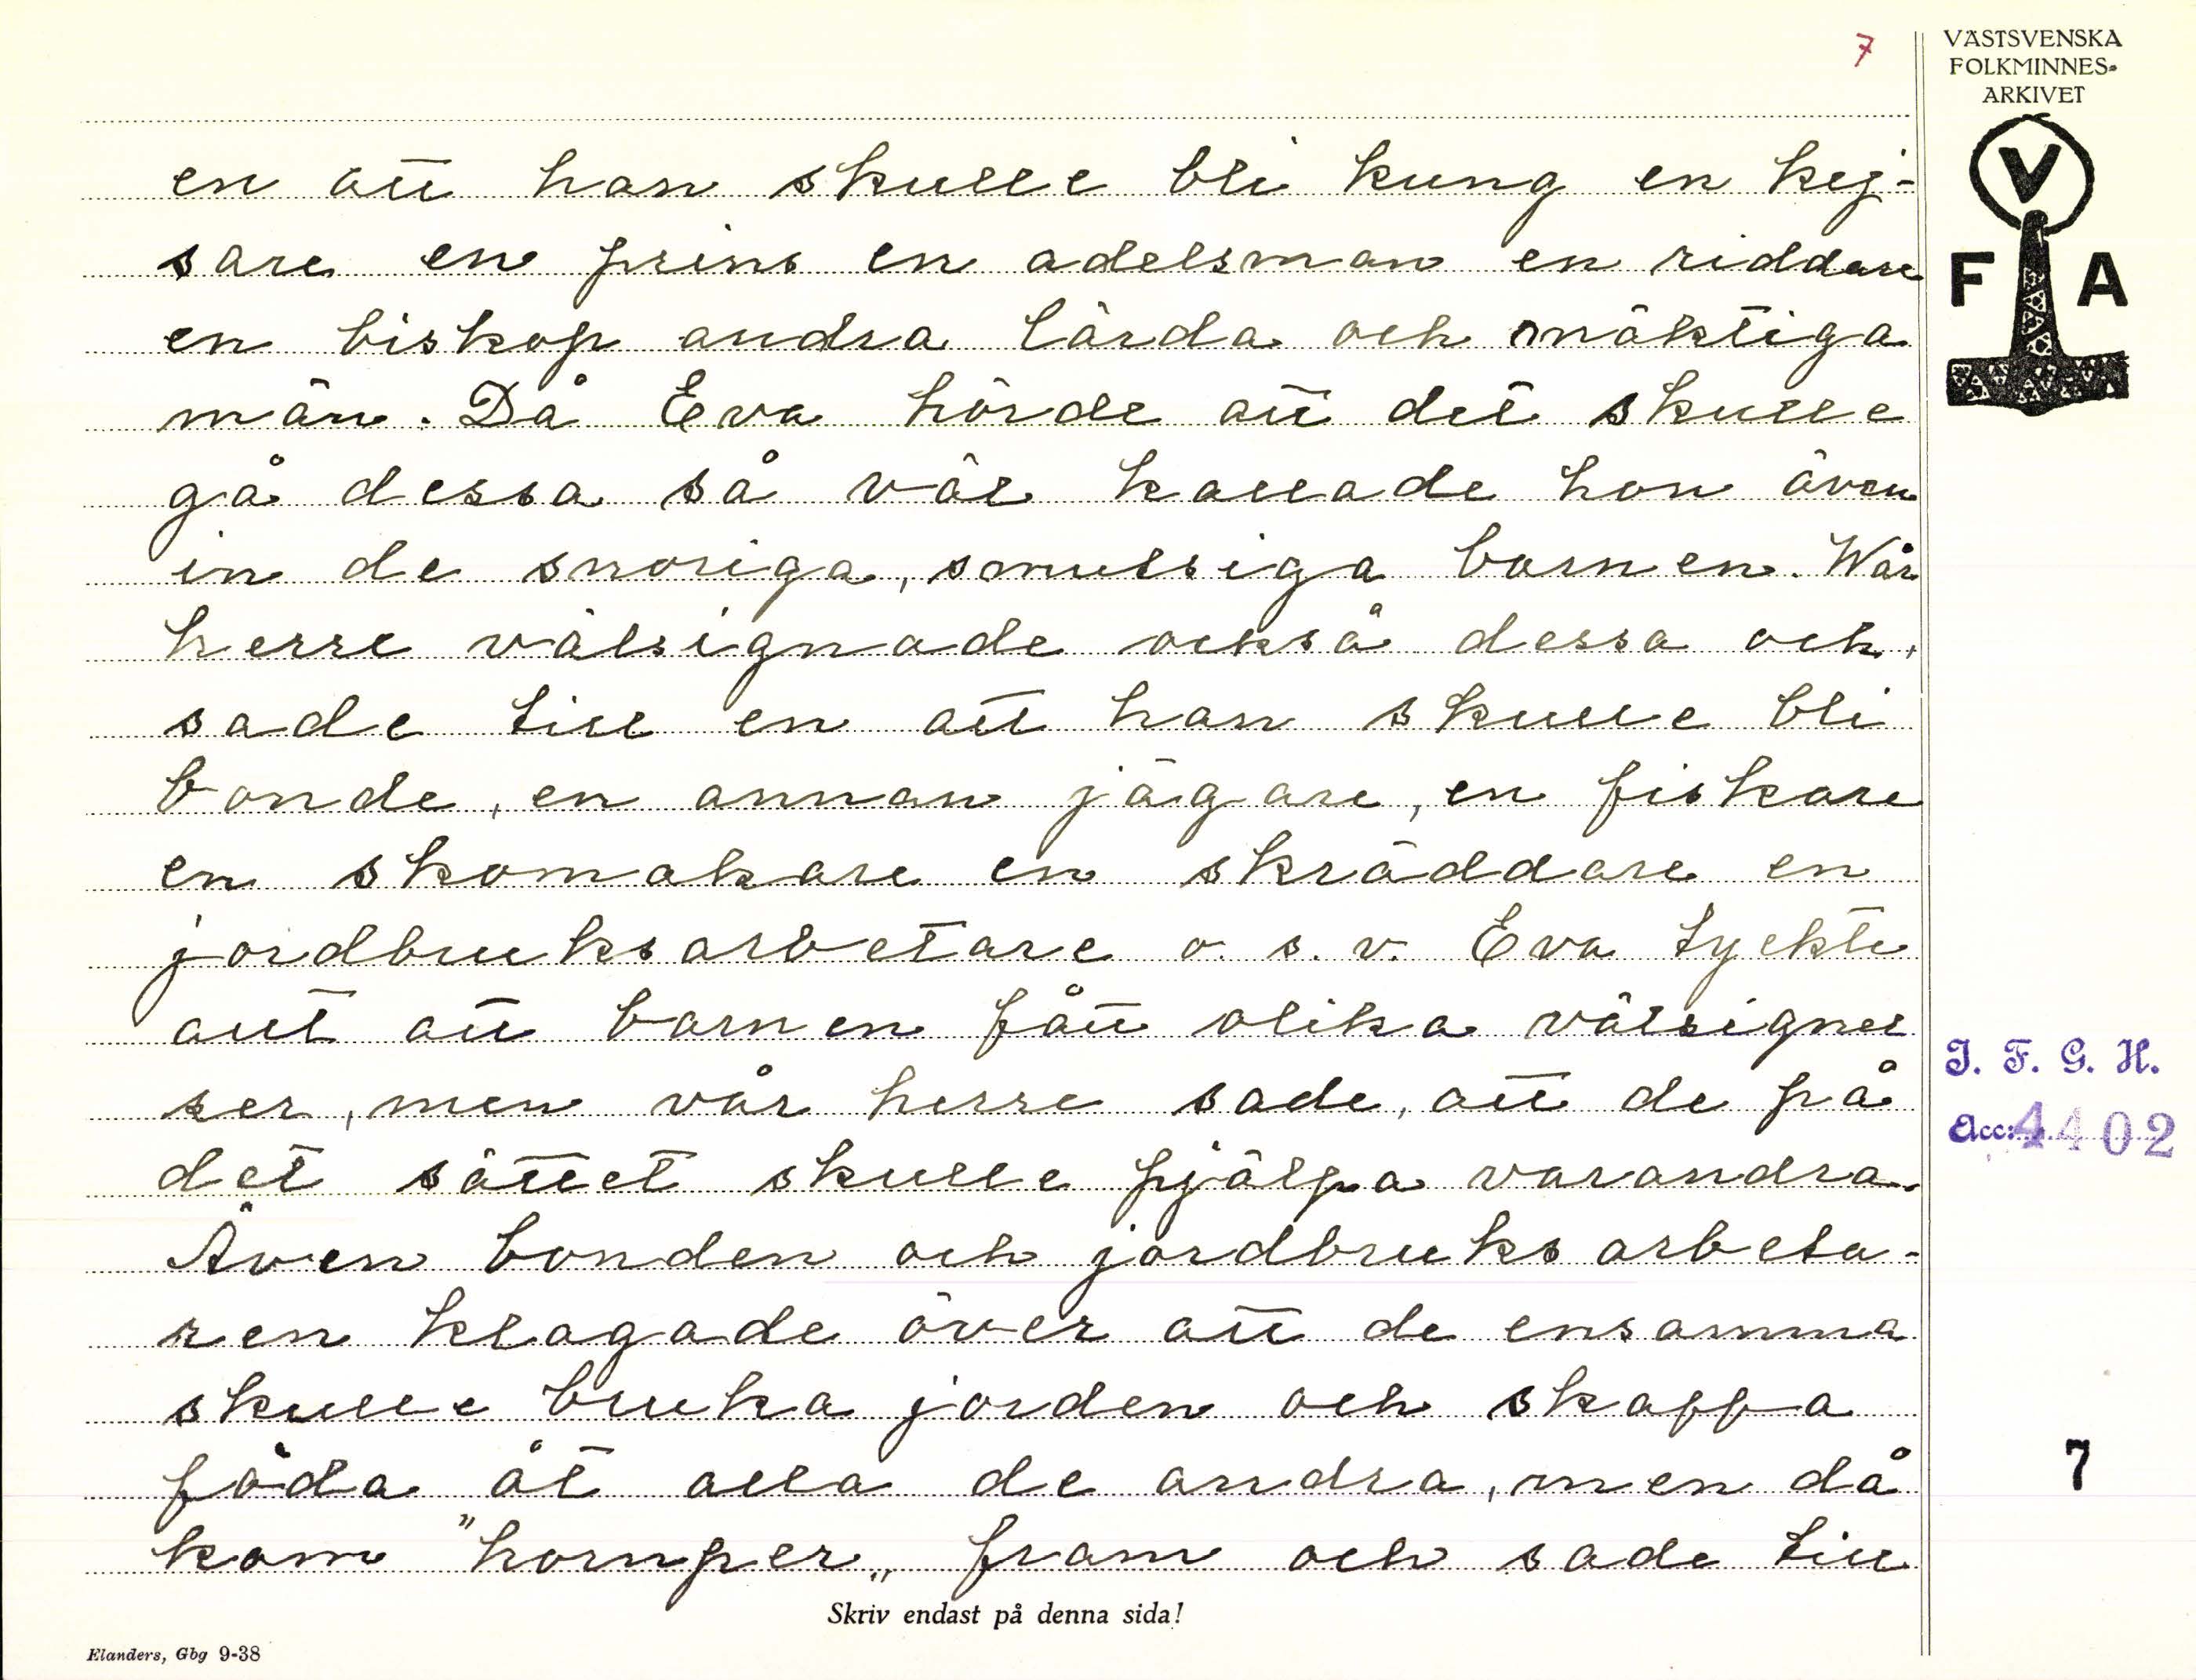 7
VÄSTSVENSKA
FOLKMINNES-
ARKIVET
V
F A
en att han skulle bli kung en kej-
sare en prins en adelsman en riddare
en biskop andra lärda och mäktiga
män. Då Eva hörde att det skulle
gå dessa så väl kallade hon även
in de snoriga, smutsiga barnen. Wår
herre välsignade också dessa och,
sade till en att han skulle bli
bonde, en annan jägare, en fiskare
en skomakare en skräddare en
jordbruksarbetare o. s. v. Eva tyckte
allt att barnen fått olika välsignel
ser, men vår herre sade, att de på
det sättet skulle hjälpa varandra.
Även bonden och jordbruksarbeta-
ren klagade över att de ensamma
skulle bruka jorden och skaffa
föda åt alla de andra, men då
kom "hornper„ fram och sade till
J. F. G. H.
Acc: 4402
7
Skriv endast på denna sida!
Elanders, Gbg 9-38